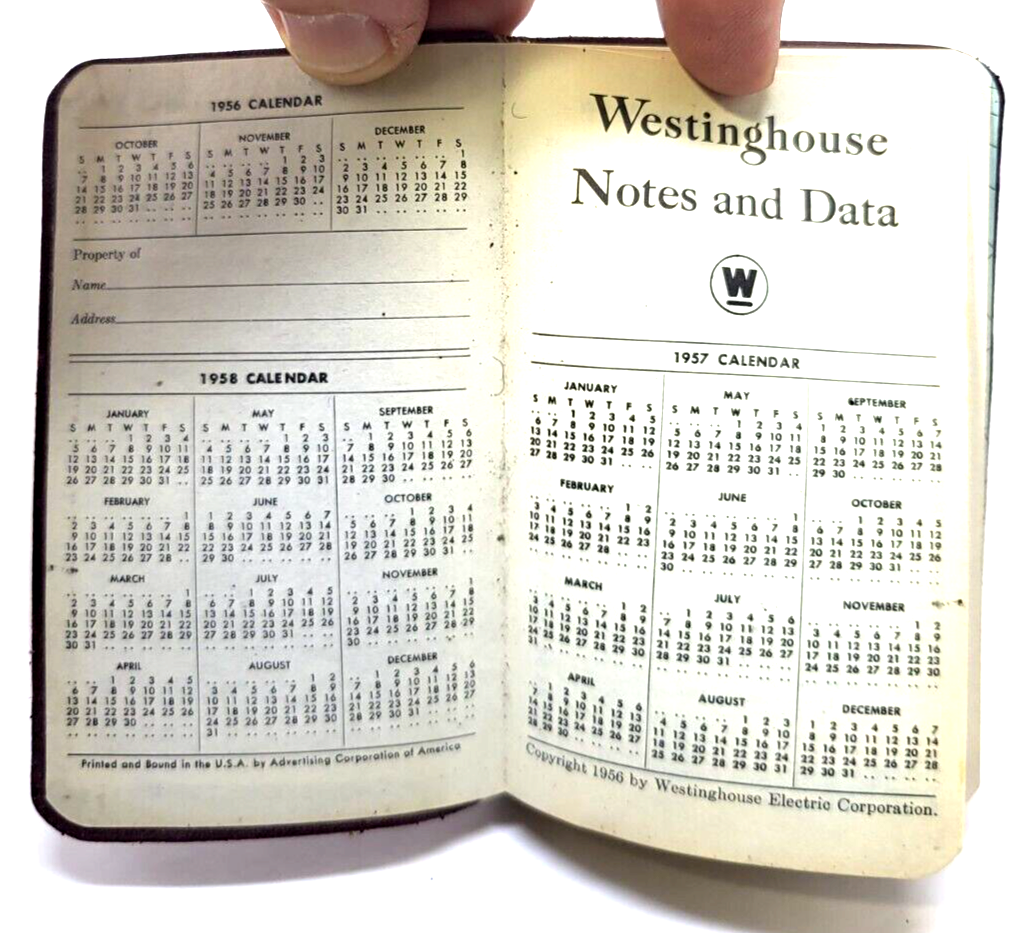 1956 CALENDAR
OCTOBER
S M T W T F S
1 2 3 4 5 6
7 8 9 10 11 12 13
14 15 16 17 18 19 20
21 22 23 24 25 26 27
28 29 30 31
NOVEMBER
S M T W T F S
1 2 3
4 5 6 7 8 9 10
11 12 13 14 15 16 17
18 19 20 21 22 23 24
25 26 27 28 29 30
DECEMBER
S M T W T F S
1
2 3 4 5 6 7 8
9 10 11 12 13 14 15
16 17 18 19 20 21 22
23 24 25 26 27 28 29
30 31
Property of
Name
Address
1958 CALENDAR
JANUARY
S M T W T F S
1 2 3 4
5 6 7 8 9 10 11
12 13 14 15 16 17 18
19 20 21 22 23 24 25
26 27 28 29 30 31
FEBRUARY
1
2 3 4 5 6 7 8
9 10 11 12 13 14 15
16 17 18 19 20 21 22
23 24 25 26 27 28
MARCH
1
2 3 4 5 6 7 8
9 10 11 12 13 14 15
16 17 18 19 20 21 22
23 24 25 26 27 28 29
30 31
APRIL
1 2 3 4 5
6 7 8 9 10 11 12
13 14 15 16 17 18 19
20 21 22 23 24 25 26
27 28 29 30
MAY
S M T W T F S
1 2 3
4 5 6 7 8 9 10
11 12 13 14 15 16 17
18 19 20 21 22 23 24
25 26 27 28 29 30 31
JUNE
1 2 3 4 5 6 7
8 9 10 11 12 13 14
15 16 17 18 19 20 21
22 23 24 25 26 27 28
29 30
JULY
1 2 3 4 5
6 7 8 9 10 11 12
13 14 15 16 17 18 19
20 21 22 23 24 25 26
27 28 29 30 31
AUGUST
1 2
3 4 5 6 7 8 9
10 11 12 13 14 15 16
17 18 19 20 21 22 23
24 25 26 27 28 29 30
31
SEPTEMBER
S M T W T F S
1 2 3 4 5 6
7 8 9 10 11 12 13
14 15 16 17 18 19 20
21 22 23 24 25 26 27
28 29 30
OCTOBER
1 2 3 4
5 6 7 8 9 10 11
12 13 14 15 16 17 18
19 20 21 22 23 24 25
26 27 28 29 30 31
NOVEMBER
1
2 3 4 5 6 7 8
9 10 11 12 13 14 15
16 17 18 19 20 21 22
23 24 25 26 27 28 29
30
DECEMBER
1 2 3 4 5 6
7 8 9 10 11 12 13
14 15 16 17 18 19 20
21 22 23 24 25 26 27
28 29 30 31
Printed and Bound in the U.S.A. by Advertising Corporation of America
Westinghouse
Notes and Data
W
1957 CALENDAR
JANUARY
S M T W T F S
1 2 3 4 5
6 7 8 9 10 11 12
13 14 15 16 17 18 19
20 21 22 23 24 25 26
27 28 29 30 31
FEBRUARY
1 2
3 4 5 6 7 8 9
10 11 12 13 14 15 16
17 18 19 20 21 22 23
24 25 26 27 28
MARCH
1 2
3 4 5 6 7 8 9
10 11 12 13 14 15 16
17 18 19 20 21 22 23
24 25 26 27 28 29 30
31
APRIL
1 2 3 4 5 6
7 8 9 10 11 12 13
14 15 16 17 18 19 20
21 22 23 24 25 26 27
28 29 30
MAY
S M T W T F S
1 2 3 4
5 6 7 8 9 10 11
12 13 14 15 16 17 18
19 20 21 22 23 24 25
26 27 28 29 30 31
JUNE
1
2 3 4 5 6 7 8
9 10 11 12 13 14 15
16 17 18 19 20 21 22
23 24 25 26 27 28 29
30
JULY
1 2 3 4 5 6
7 8 9 10 11 12 13
14 15 16 17 18 19 20
21 22 23 24 25 26 27
28 29 30 31
AUGUST
1 2 3
4 5 6 7 8 9 10
11 12 13 14 15 16 17
18 19 20 21 22 23 24
25 26 27 28 29 30 31
SEPTEMBER
S M T W T F S
1 2 3 4 5 6 7
8 9 10 11 12 13 14
15 16 17 18 19 20 21
22 23 24 25 26 27 28
29 30
OCTOBER
1 2 3 4 5
6 7 8 9 10 11 12
13 14 15 16 17 18 19
20 21 22 23 24 25 26
27 28 29 30 31
NOVEMBER
1 2
3 4 5 6 7 8 9
10 11 12 13 14 15 16
17 18 19 20 21 22 23
24 25 26 27 28 29 30
DECEMBER
1 2 3 4 5 6 7
8 9 10 11 12 13 14
15 16 17 18 19 20 21
22 23 24 25 26 27 28
29 30 31
Copyright 1956 by Westinghouse Electric Corporation.